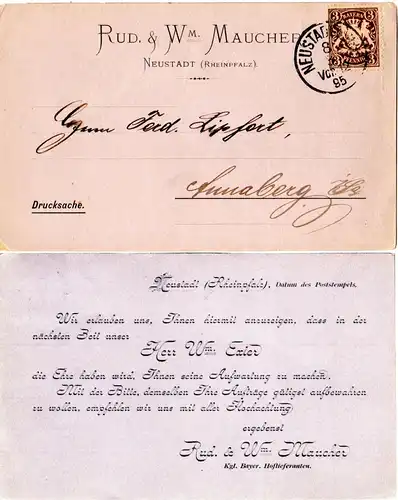 RUD. & WM. MAUCHER
NEUSTADT (RHEINPFALZ).
BAYERN
3 3
PFENNIG
NEUSTADT
8
VOR.
85
Ferd. Lipfert,
Annaberg
Drucksache.
Neustadt (Rheinpfalz), Datum des Poststempels.
Wir erlauben uns, Ihnen hiermit anzuzeigen, dass in der
nächsten Zeit unser
Herr Wm. Exter
die Ehre haben wird, Ihnen seine Aufwartung zu machen.
Mit der Bitte, demselben Ihre Aufträge gütigst aufbewahren
zu wollen, empfehlen wir uns mit aller Hochachtung
ergebenst
Rud. & Wm. Maucher
Kgl. Bayer. Hoflieferanten.